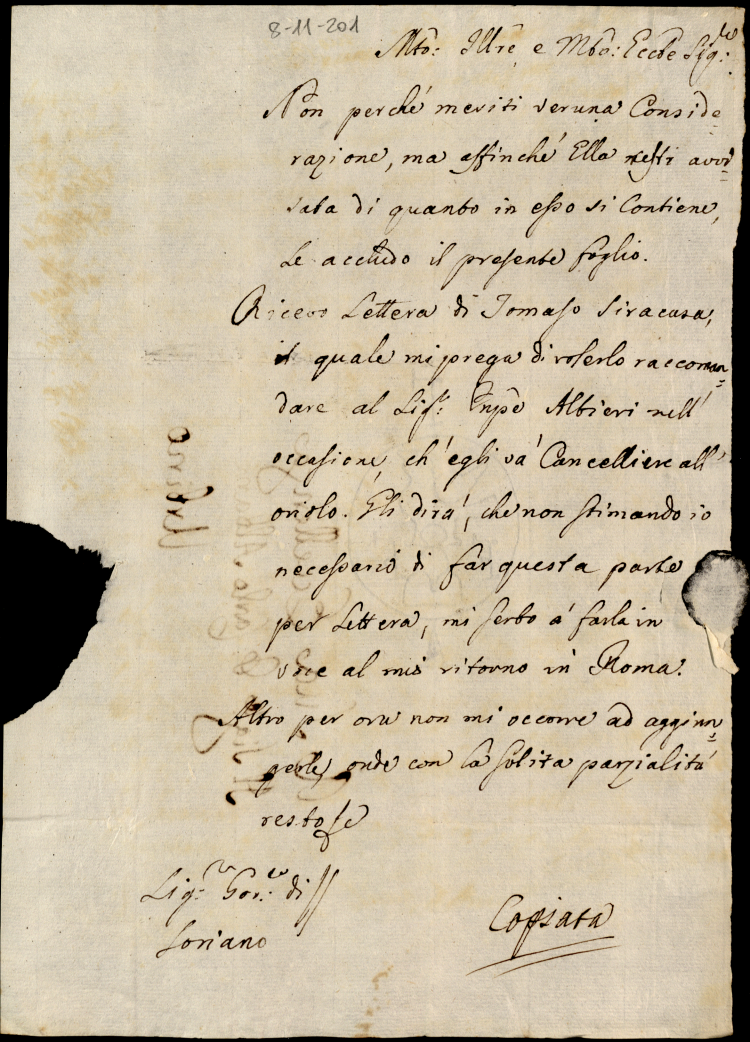 8-11-201
Mtõ: Illrẽ e Mtõ: Eccẽe Sigre:
Non perché meriti veruna Conside=
razione, ma affinché Ella resti avvi=
sata di quanto in esso si Contiene,
Le accludo il presente foglio.
Ricevo Lettera di Tomaso Siracusa,
il quale mi prega di volerlo raccoman=
dare al Sigr: Altieri nell'
occasione, ch'egli và Cancelliere all'
oriolo. Gli dirà, che non stimando io
necessario di far questa parte
per Lettera, mi serbo à farla in
voce al mio ritorno in Roma.
Altro per ora non mi occorre ad aggiun=
gerle, onde con la solita parzialità
resto
Sigre: Gorre: di //
Soriano
Copiata
Urbino